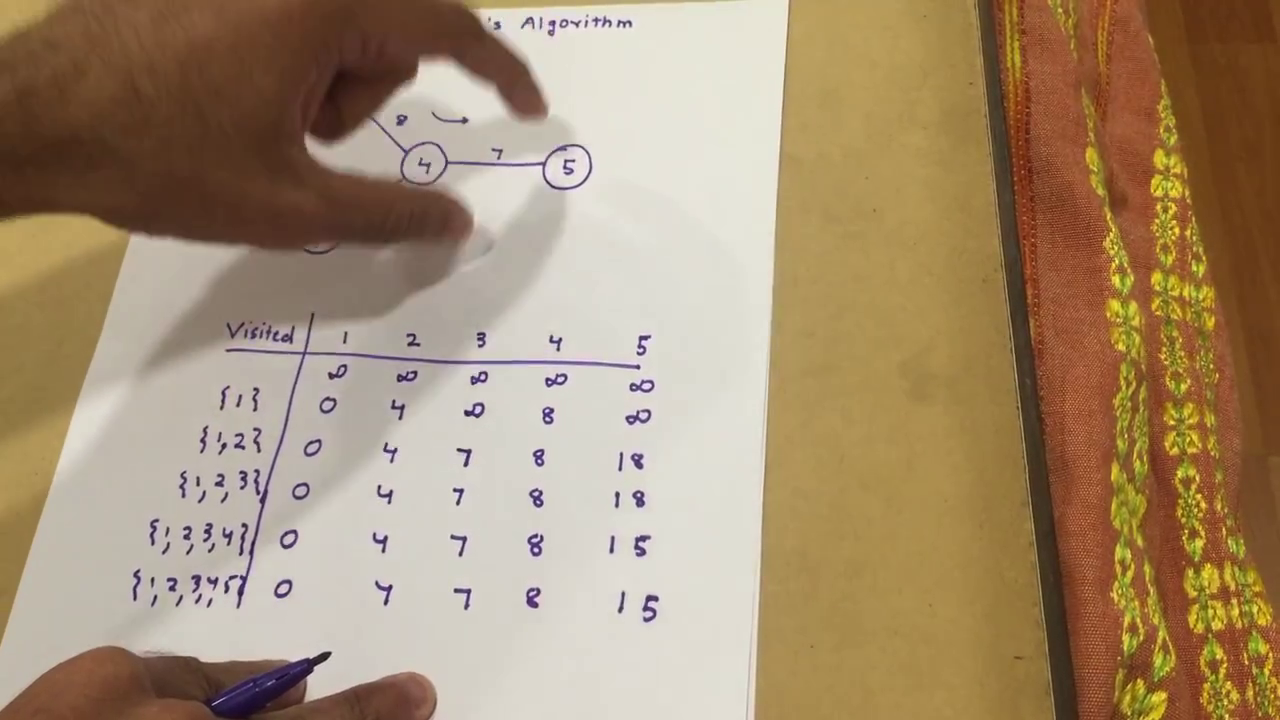 's Algorithm
8
4 7 5
Visited 1 2 3 4 5
∞ ∞ ∞ ∞ ∞
{1} 0 4 ∞ 8 ∞
{1,2} 0 4 7 8 18
{1,2,3} 0 4 7 8 18
{1,2,3,4} 0 4 7 8 15
{1,2,3,4,5} 0 4 7 8 15